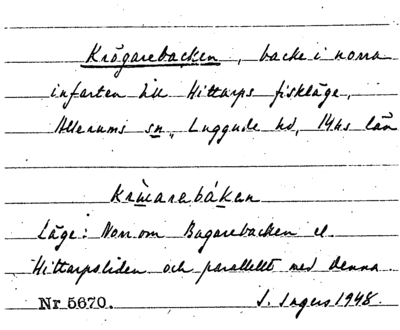 Krögarebacken, backe i norra
infarten till Hittarps fiskläge,
Allerums sn., Luggude hd, Mhs län
Krùmarebákan
Läge: Norr om Bagarebacken el.
Hittarpsliden och parallellt med denna.
Nr 5670. S. Ingers 1948.